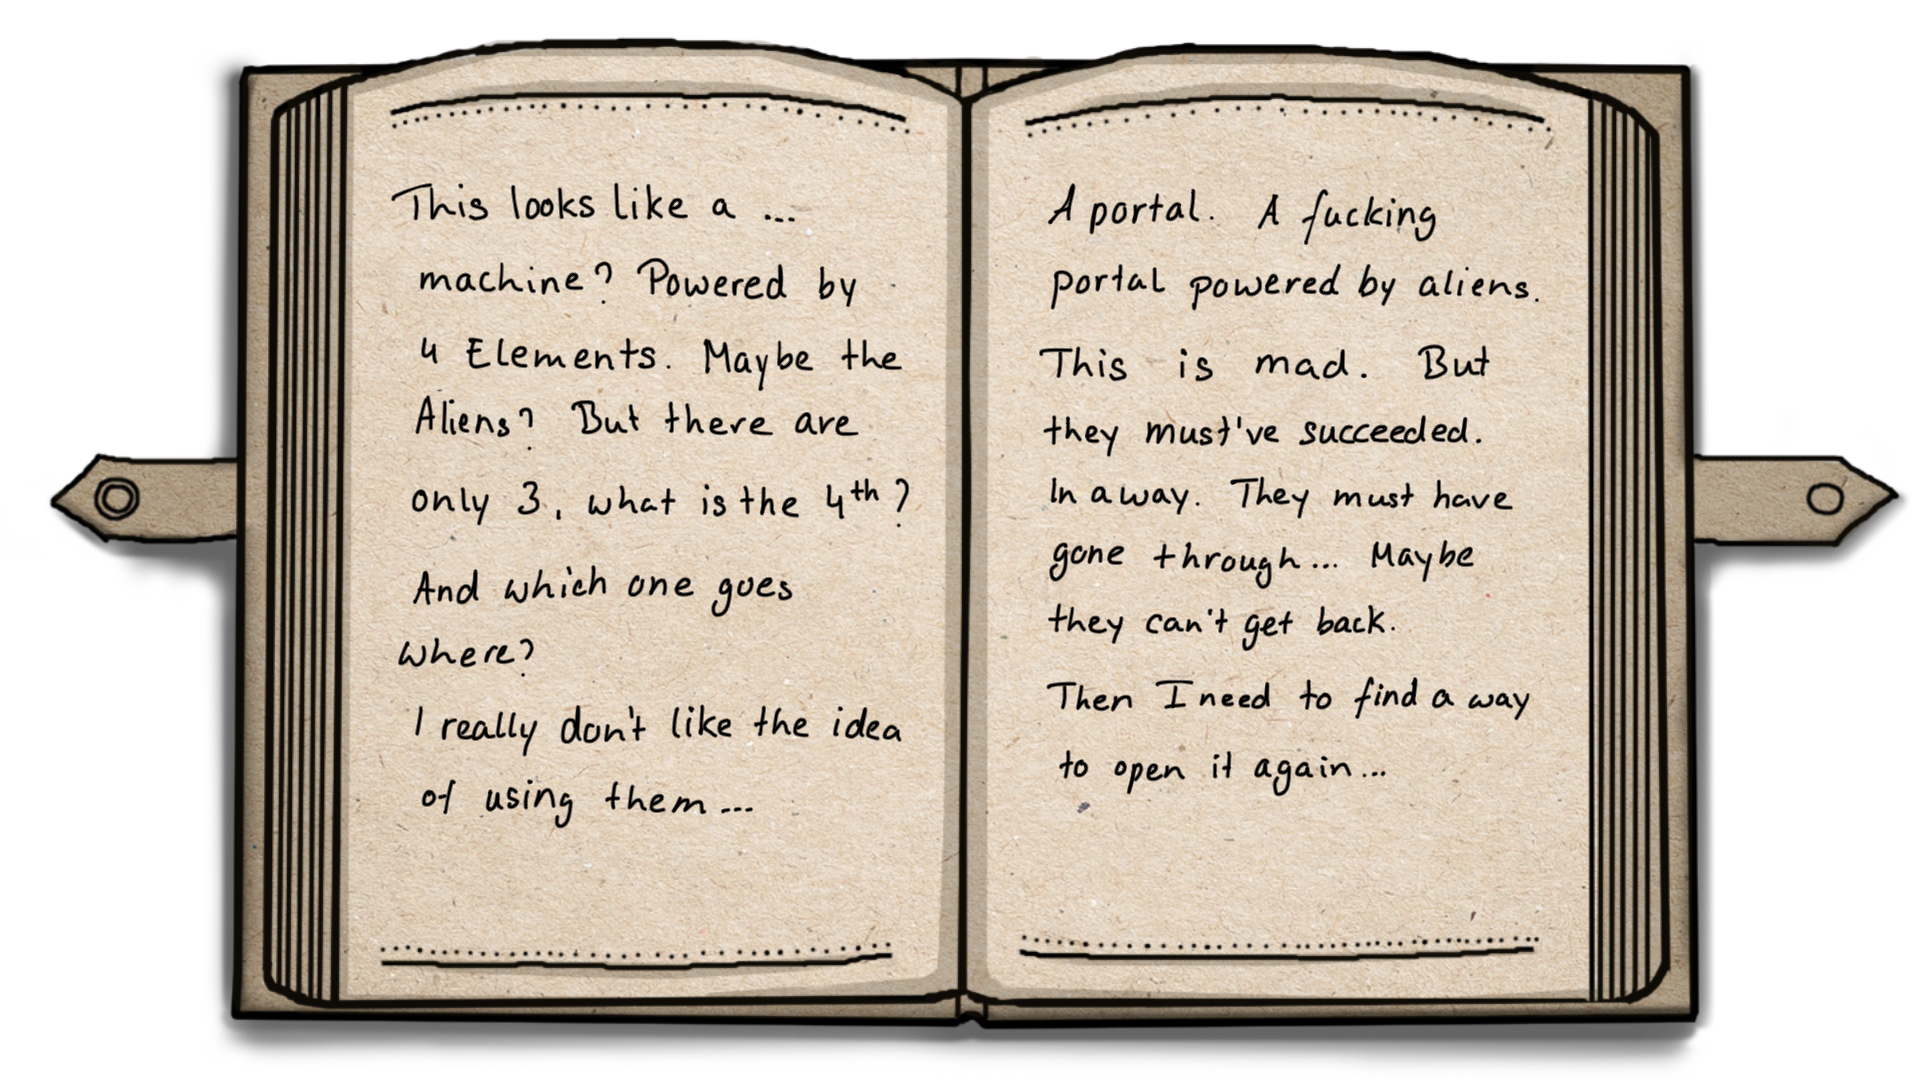 This looks like a ...
machine? Powered by
4 Elements. Maybe the
Aliens? But there are
only 3, what is the 4th?
And which one goes
where?
I really don't like the idea
of using them...
A portal. A fucking
portal powered by aliens.
This is mad. But
they must've succeeded.
In a way. They must have
gone through... Maybe
they can't get back.
Then I need to find a way
to open it again...